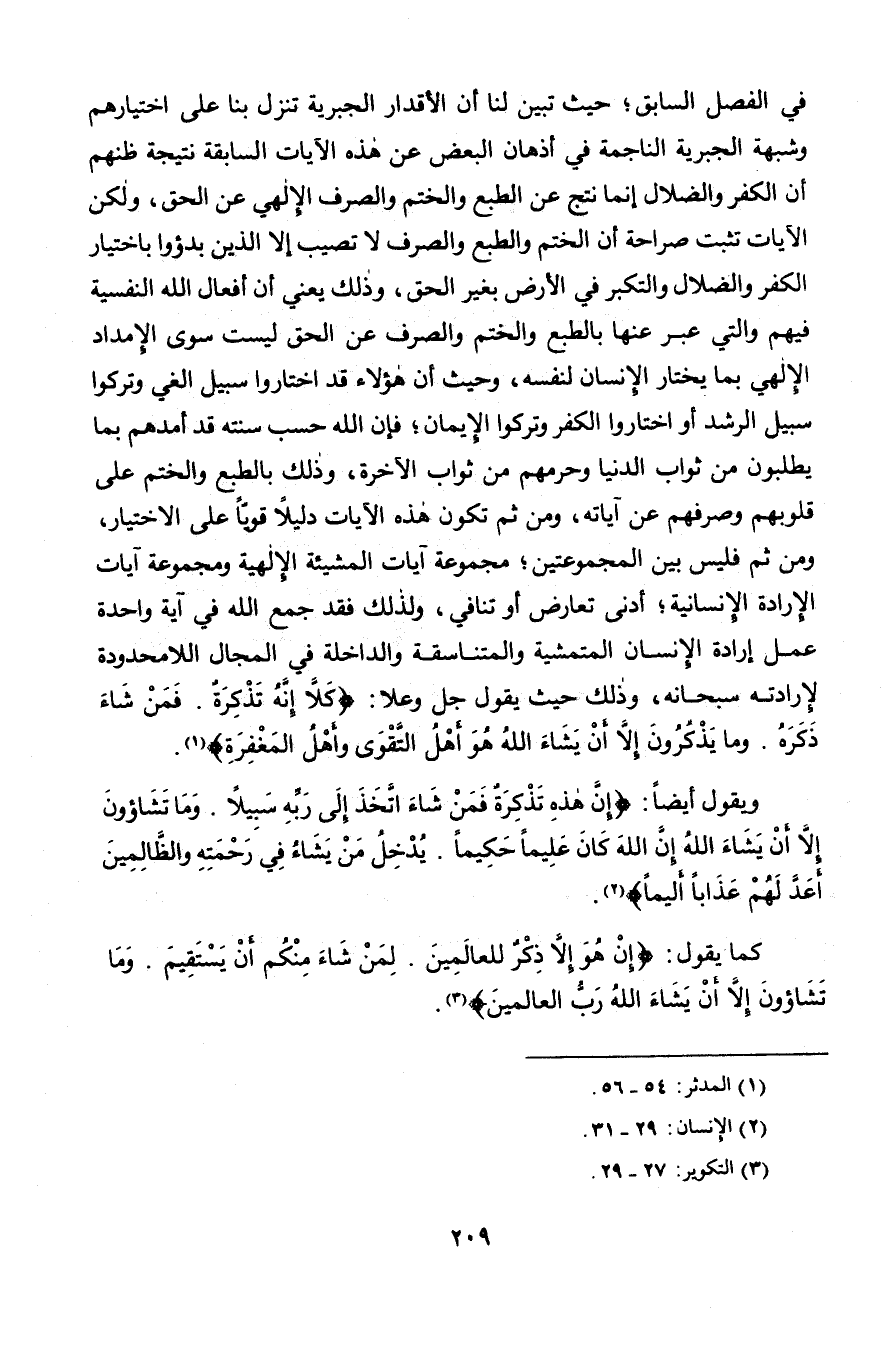 في الفصل السابق؛ حيث تبين لنا أن الأقدار الجبرية تنزل بنا على اختيارهم
وشبهة الجبرية الناجمة في أذهان البعض عن هٰذه الآيات السابقة نتيجة ظنهم
أن الكفر والضلال إنما نتج عن الطبع والختم والصرف الإلٰهي عن الحق، ولٰكن
الآيات تثبت صراحة أن الختم والطبع والصرف لا تصيب إلا الذين بدؤوا باختيار
الكفر والضلال والتكبر في الأرض بغير الحق، وذٰلك يعني أن أفعال الله النفسية
فيهم والتي عبر عنها بالطبع والختم والصرف عن الحق ليست سوى الإمداد
الإلٰهي بما يختار الإنسان لنفسه، وحيث أن هٰؤلاء قد اختاروا سبيل الغي وتركوا
سبيل الرشد أو اختاروا الكفر وتركوا الإيمان؛ فإن الله حسب سنته قد أمدهم بما
يطلبون من ثواب الدنيا وحرمهم من ثواب الآخرة، وذٰلك بالطبع والختم على
قلوبهم وصرفهم عن آياته، ومن ثم تكون هٰذه الآيات دليلاً قويّاً على الاختيار،
ومن ثم فليس بين المجموعتين؛ مجموعة آيات المشيئة الإلٰهية ومجموعة آيات
الإرادة الإنسانية؛ أدنى تعارض أو تنافي، ولذٰلك فقد جمع الله في آية واحدة
عمل إرادة الإنسان المتمشية والمتناسقة والداخلة في المجال اللامحدودة
لإرادته سبحانه، وذٰلك حيث يقول جل وعلا: ﴿كَلَّا إِنَّهُ تَذْكِرَةٌ . فَمَنْ شَاءَ
ذَكَرَهُ . وما يَذْكُرُونَ إِلَّا أَنْ يَشَاءَ اللهُ هُوَ أَهْلُ التَّقْوَى وأَهْلُ المَغْفِرَةِ﴾(١).
ويقول أيضاً: ﴿إِنَّ هٰذِهِ تَذْكِرَةٌ فَمَنْ شَاءَ اتَّخَذَ إِلَى رَبِّهِ سَبِيلًا . وَمَا تَشَاؤونَ
إِلَّا أَنْ يَشَاءَ اللهُ إِنَّ اللهَ كَانَ عَلِيماً حَكِيماً . يُدْخِلُ مَنْ يَشَاءُ فِي رَحْمَتِهِ والظَّالِمِينَ
أَعَدَّ لَهُمْ عَذَاباً أَلِيماً﴾(٢).
كما يقول: ﴿إِنْ هُوَ إِلَّا ذِكْرٌ للعالَمِينَ . لِمَنْ شَاءَ مِنْكُم أَنْ يَسْتَقِيمَ . وَمَا
تَشَاؤونَ إِلَّا أَنْ يَشَاءَ اللهُ رَبُّ العالمينَ﴾(٣).
(١) المدثر: ٥٤ ـ ٥٦.
(٢) الإنسان: ٢٩ ـ ٣١.
(٣) التكوير: ٢٧ ـ ٢٩.
٢٠٩